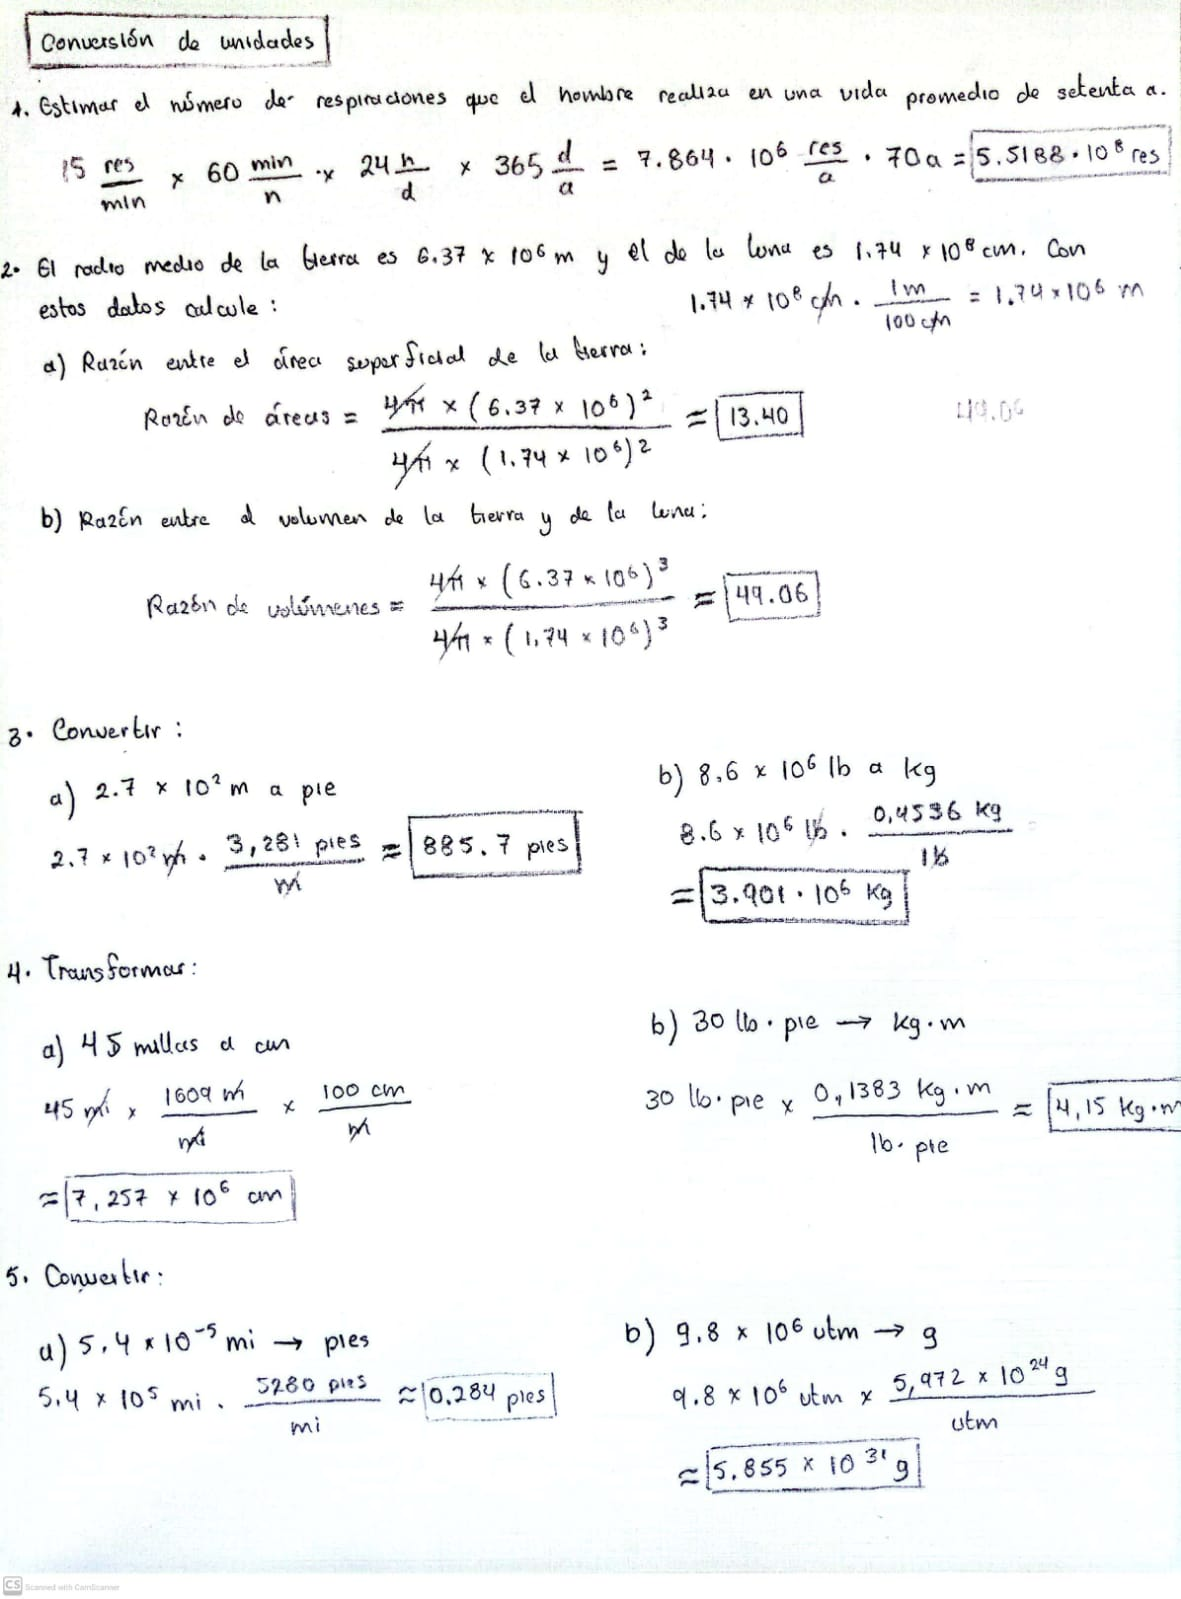 Conversión de unidades
1. Estimar el número de respiraciones que el hombre realiza en una vida promedio de setenta a.
15 res/min × 60 min/h × 24 h/d × 365 d/a = 7.864 · 10⁶ res/a · 70a = 5.5188 · 10⁸ res
2. El radio medio de la tierra es 6.37 × 10⁶ m y el de la luna es 1.74 × 10⁸ cm. Con
estos datos calcule :
1.74 × 10⁸ cm · 1m/100 cm = 1.74 × 10⁶ m
a) Razón entre el área superficial de la tierra:
Razón de áreas = 4π × (6.37 × 10⁶)² / 4π × (1.74 × 10⁶)² = 13.40
49.06
b) Razón entre el volumen de la tierra y de la luna:
Razón de volúmenes = 4π × (6.37 × 10⁶)³ / 4π × (1.74 × 10⁶)³ = 49.06
3. Convertir :
a) 2.7 × 10² m a pie
2.7 × 10² m · 3,281 pies / m ≈ 885.7 pies
b) 8,6 × 10⁶ lb a kg
8.6 × 10⁶ lb · 0,4536 kg / lb
= 3.901 · 10⁶ kg
4. Transformar:
a) 45 millas a cm
45 mi × 1609 m / mi × 100 cm / m
≈ 7,257 × 10⁶ cm
b) 30 lb · pie → kg · m
30 lb · pie × 0,1383 kg · m / lb · pie = 4,15 kg · m
5. Convertir:
a) 5.4 × 10⁻⁵ mi → pies
5.4 × 10⁵ mi · 5280 pies / mi ≈ 0.284 pies
b) 9.8 × 10⁶ utm → g
9.8 × 10⁶ utm × 5,972 × 10²⁴ g / utm
≈ 5.855 × 10³¹ g
CS Scanned with CamScanner